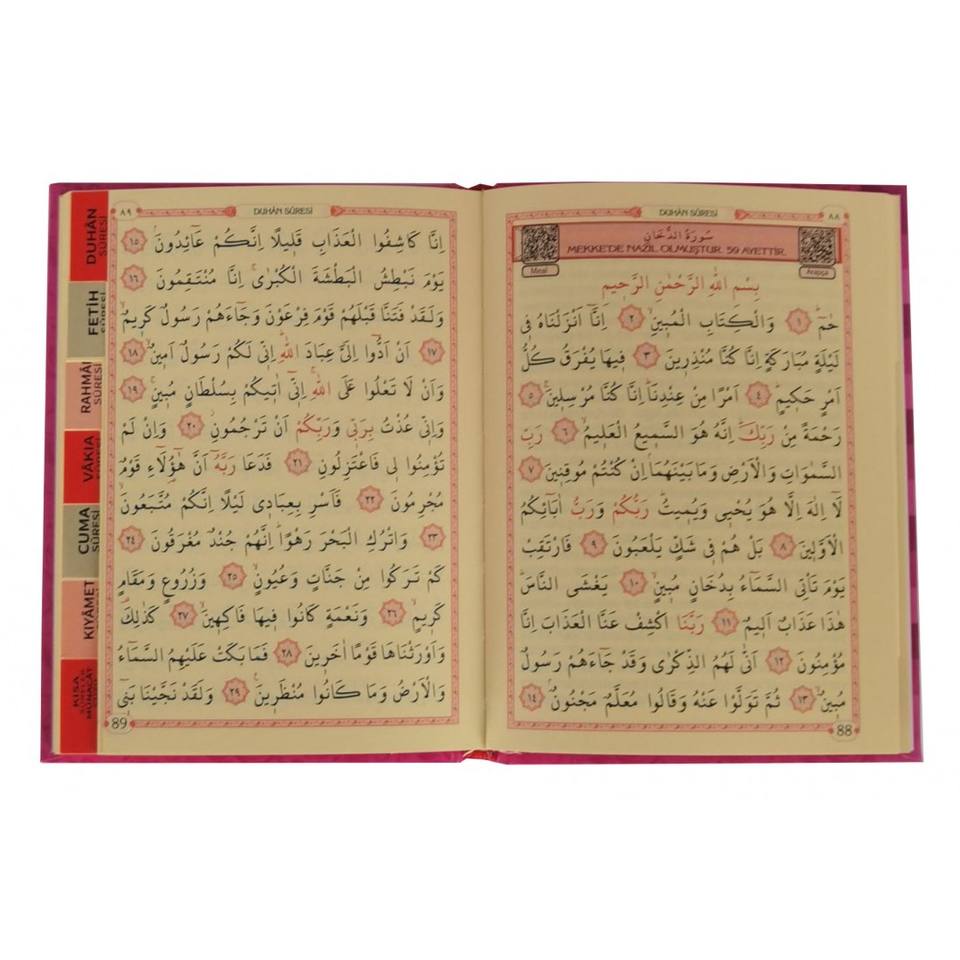 ٨٨
DUHÂN SÛRESİ
سُورَةُ الدُّخَانِ
MEKKE'DE NAZİL OLMUŞTUR. 59 AYETTİR.
Meal
Arapça
بِسْمِ اللّٰهِ الرَّحْمٰنِ الرَّح۪يمِ
حٰمٓۜ ﴿١﴾ وَالْكِتَابِ الْمُب۪ينِۙ ﴿٢﴾ اِنَّٓا اَنْزَلْنَاهُ ف۪ي
لَيْلَةٍ مُبَارَكَةٍ اِنَّا كُنَّا مُنْذِر۪ينَ ﴿٣﴾ ف۪يهَا يُفْرَقُ كُلُّ
اَمْرٍ حَك۪يمٍۙ ﴿٤﴾ اَمْرًا مِنْ عِنْدِنَاۜ اِنَّا كُنَّا مُرْسِل۪ينَۚ ﴿٥﴾
رَحْمَةً مِنْ رَبِّكَۜ اِنَّهُ هُوَ السَّم۪يعُ الْعَل۪يمُۙ ﴿٦﴾ رَبِّ
السَّمٰوَاتِ وَالْاَرْضِ وَمَا بَيْنَهُمَاۢ اِنْ كُنْتُمْ مُوقِن۪ينَ ﴿٧﴾
لَٓا اِلٰهَ اِلَّا هُوَ يُحْي۪ي وَيُم۪يتُۜ رَبُّكُمْ وَرَبُّ اٰبَٓائِكُمُ
الْاَوَّل۪ينَ ﴿٨﴾ بَلْ هُمْ ف۪ي شَكٍّ يَلْعَبُونَ ﴿٩﴾ فَارْتَقِبْ
يَوْمَ تَأْتِي السَّمَٓاءُ بِدُخَانٍ مُب۪ينٍۙ ﴿١٠﴾ يَغْشَى النَّاسَۜ
هٰذَا عَذَابٌ اَل۪يمٌ ﴿١١﴾ رَبَّنَا اكْشِفْ عَنَّا الْعَذَابَ اِنَّا
مُؤْمِنُونَ ﴿١٢﴾ اَنّٰى لَهُمُ الذِّكْرٰى وَقَدْ جَٓاءَهُمْ رَسُولٌ
مُب۪ينٌۙ ﴿١٣﴾ ثُمَّ تَوَلَّوْا عَنْهُ وَقَالُوا مُعَلَّمٌ مَجْنُونٌۢ ﴿١٤﴾
88
٨٩
DUHÂN SÛRESİ
اِنَّا كَاشِفُوا الْعَذَابِ قَل۪يلًا اِنَّكُمْ عَٓائِدُونَۢ ﴿١٥﴾
يَوْمَ نَبْطِشُ الْبَطْشَةَ الْكُبْرٰىۚ اِنَّا مُنْتَقِمُونَ ﴿١٦﴾
وَلَقَدْ فَتَنَّا قَبْلَهُمْ قَوْمَ فِرْعَوْنَ وَجَٓاءَهُمْ رَسُولٌ كَر۪يمٌۙ
﴿١٧﴾ اَنْ اَدُّٓوا اِلَيَّ عِبَادَ اللّٰهِۜ اِنّ۪ي لَكُمْ رَسُولٌ اَم۪ينٌۙ ﴿١٨﴾
وَاَنْ لَا تَعْلُوا عَلَى اللّٰهِۚ اِنّ۪ٓي اٰت۪يكُمْ بِسُلْطَانٍ مُب۪ينٍۚ ﴿١٩﴾
وَاِنّ۪ي عُذْتُ بِرَبّ۪ي وَرَبِّكُمْ اَنْ تَرْجُمُونِۘ ﴿٢٠﴾ وَاِنْ لَمْ
تُؤْمِنُوا ل۪ي فَاعْتَزِلُونِ ﴿٢١﴾ فَدَعَا رَبَّهُٓ اَنَّ هٰٓؤُ۬لَٓاءِ قَوْمٌ
مُجْرِمُونَ ﴿٢٢﴾ فَاَسْرِ بِعِبَاد۪ي لَيْلًا اِنَّكُمْ مُتَّبَعُونَۙ
﴿٢٣﴾ وَاتْرُكِ الْبَحْرَ رَهْوًاۜ اِنَّهُمْ جُنْدٌ مُغْرَقُونَ ﴿٢٤﴾
كَمْ تَرَكُوا مِنْ جَنَّاتٍ وَعُيُونٍۙ ﴿٢٥﴾ وَزُرُوعٍ وَمَقَامٍ
كَر۪يمٍۙ ﴿٢٦﴾ وَنَعْمَةٍ كَانُوا ف۪يهَا فَاكِه۪ينَۙ ﴿٢٧﴾ كَذٰلِكَ۠
وَاَوْرَثْنَاهَا قَوْمًا اٰخَر۪ينَ ﴿٢٨﴾ فَمَا بَكَتْ عَلَيْهِمُ السَّمَٓاءُ
وَالْاَرْضُ وَمَا كَانُوا مُنْظَر۪ينَ۟ ﴿٢٩﴾ وَلَقَدْ نَجَّيْنَا بَن۪ٓي
89
DUHÂN
SÛRESİ
FETİH
SÛRESİ
RAHMÂN
SÛRESİ
VÂKIA
CUMA
SÛRESİ
KIYÂMET
KISA